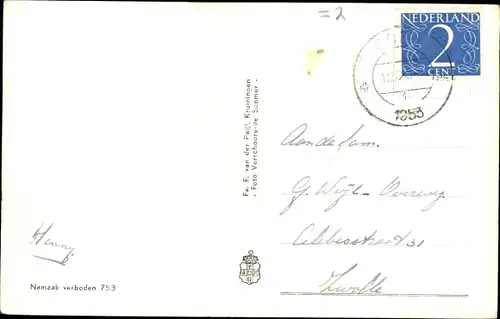 =2
NEDERLAND
2
CENT
1953
Fa. F. van der Peijl, Kruiningen
- Foto Verschoore-de Soomer -
Aan de fam.
G. Wijl - Overweg
Celebesstraat 31
Zwolle
Henny
Namaak verboden 753